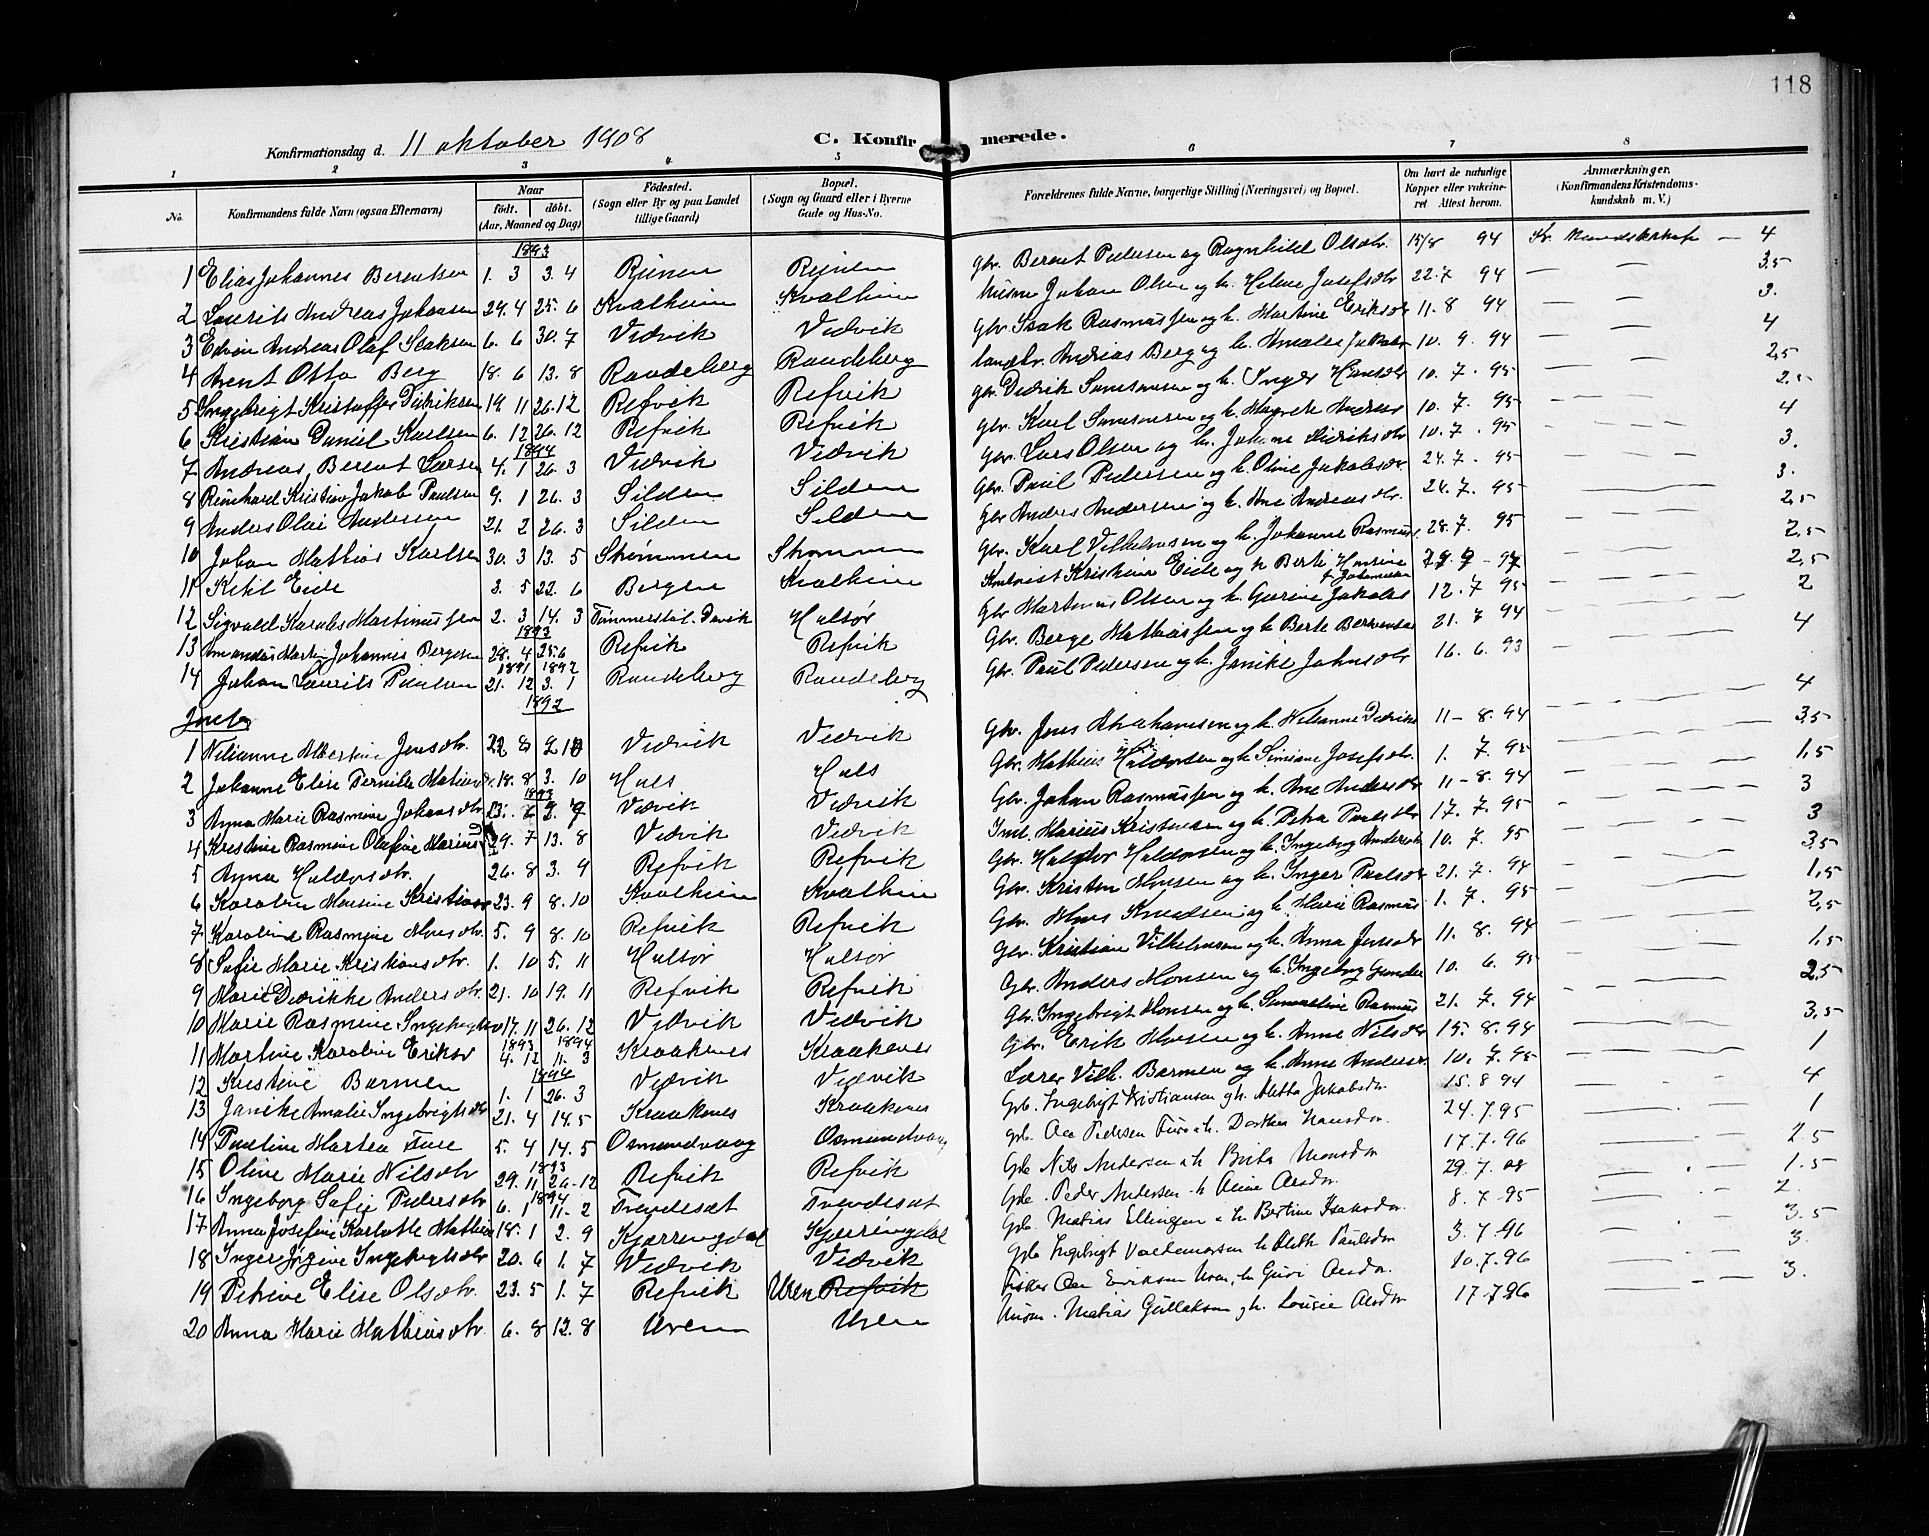 118
Konfirmationsdag d. 11 oktober 1908 C. Konfirmerede.
1 2 3 4 5 6 7 8
No. Konfirmandens fulde Navn (ogsaa Efternavn) Naar født. døbt. (Aar, Maaned og Dag) Fødested. (Sogn eller By og paa Landet tillige Gaard) Bopæl. (Sogn og Gaard eller i Byerne Gade og Hus-No. Forældrenes fulde Navne, borgerlige Stilling (Næringsvei) og Bopæl. Om havt de naturlige Kopper eller vaccineret Attest herom. Anmærkninger. (Konfirmandens Kristendomskundskab m. V.)
1893
1 Elias Johannes Berentsen 1. 3 3. 4 Rimen Rimen Gbr. Berent Pedersen og Ragnhild Olsdtr. 15/8 94 Kr. kundskab — 4
2 Laurits Andreas Johansen 24. 4 25. 6 Kvalheim Kvalheim Husm Johan Olsen og h. Helene Josefsdtr 22.7 94 — — 3,5
3 Edvin Andreas Olaf Isaksen 6. 6 30. 7 Vedvik Vedvik Gbr. Isak Rasmussen og h. Martine Eriksdtr 11. 8 94 — — 3.
4 Arent Otto Berg 18. 6 13. 8 Raudeberg Raudeberg Landhr. Andreas Berg og h. Amalie Jakobsdr 10. 9. 94 — — 4
5 Ingebrigt Kristoffer Didriksen 19. 11 26. 12 Refvik Refvik gbr. Didrik Simonsen og h. Inger Hansdtr 10. 7. 95 — — 2,5
6 Kristian Daniel Karlsen 6. 12 26. 12 Refvik Refvik Gbr. Karl Simonsen og h. Magrete Andrea 10. 7. 95 — — 2.5
1894
7 Andreas Berent Larsen 4. 1 26. 3 Vedvik Vedvik Gbr. Lars Olsen og h. Johanne Didriksdtr 10. 7. 95 — — 4
8 Reinhard Kristian Jakob Paulsen 9. 1 26. 3 Silden Silden Gbr. Paul Pedersen og h. Oline Jakobsdr. 24. 7. 95 — — 3.
9 Anders Olai Andersen 21. 2 26. 3 Silden Silden Gbr Anders Andersen og h. Ane Andreasdtr. 24. 7. 95 — — 3.
10 Johan Mathias Karlsen 30. 3 13. 5 Strømmen Strømmen Gbr. Karl Vilhelmsen og h. Johanne Rasmus 28. 7. 95 — — 2,5
11 Ketil Eide 3. 5 22. 6 Bergen Kvalheim Kristian Eide og h Berte — — 2,5
12 Sigvald Karolus Martinussen 2. 3 14. 3 Timmerstøl. Davik Halsør Gbr Martinus Olsen og h. Gurine Jakobs 12. 7 95 — — 2,5
1893
13 Amandus Martin Johannes Bergesen 28. 4 25. 6 Refvik Refvik Gbr. Berge Mathiassen og h Berte Berentsdr 21. 7 94 — — 2
1891 1892
14 Johan Laurits Paulsen 21. 12 3. 1 Raudeberg Raudeberg Gbr. Paul Pedersen og h. Janike Johnsdtr 16. 6. 93 — — 4
1892
1 Nelianne Albertine Jensdtr. 22 8 2 10 Vedvik Vedvik Gbr. Jens Abrahamsen og h. Nelianne Didriks 11 - 8. 94 — — 4
2 Johanne Elise Pernille Mathias 18. 8 3. 10 Hals Hals Gbr. Mathias Haldorsen og h. Simiane Josefsdtr. 1. 7. 95 — — 3,5
1893
3 Anna Marie Rasmine Johansdtr 23. 2. 7 Vedvik Vedvik Gbr. Johan Rasmussen og h. Ane Andersdtr 11 - 8. 94 — — 1,5
4 Kristine Rasmine Olufine Marius 29. 7 13. 8 Vedvik Vedvik Inds. Marius Kristiansen og h. Petra Paulsdtr 17. 7. 95 — — 3
5 Anna Haldorsdtr. 26. 8 3. 9 Refvik Refvik Gbr. Haldor Haldorsen og h. Ingeborg Andersdtr 10. 7. 95 — — 3
6 Karoline Monsine Kristiansdr 23. 9 8. 10 Kvalheim Kvalheim Gbr. Kristen Monsen og h. Inger Paulsdtr 21. 7. 94 — — 3,5
7 Karoline Rasmine Monsdtr. 5. 9 8. 10 Refvik Refvik Gbr. Mons Knudsen og h. Marie Rasmus 1. 7. 95 — — 1,5
8 Sofie Marie Kristiansdtr. 1. 10 5. 11 Halsør Halsør Gbr. Kristian Vilhelmsen og h. Anna Jensdtr 11. 8. 94 — — 2,5
9 Marie Didrikke Andersdtr. 21. 10 19. 11 Refvik Refvik Gbr. Anders Monsen og h. Ingeborg Gunder 10. 6. 95 — — 1,5
10 Marie Rasmine Ingebrigtsd 17. 11 26. 12 Vedvik Vedvik Gbr. Ingebrigt Monsen og h. Rasmus 21. 7. 94 — — 2,5
1893 1894
11 Martine Karoline Eriksdr 4. 12 11. 3 Kraakenes Kraakenes Gbr. Erik Monsen og h. Anne Nilsdtr 15. 8. 94 — — 3,5
1894
12 Kristine Barmen 1. 1 26. 3 Vedvik Vedvik Lærer Vilh. Barmen og h. Anne Andersdr. 10. 7. 95 — — 1
13 Janike Amalie Ingebrigtsdtr 21. 4 14. 5 Kraakenes Kraakenes Gbr. Ingebrigt Kristiansen og h. Metha Jakobsdr. 15. 8 94 — — 4
14 Pauline Martea Fure 5. 4 14. 5 Osmundvaag Osmundvaag Gbr. Aa Pedersen Fure o h. Dorthea Hansdtr. 24. 7. 95 — — 1
1893
15 Oline Marie Nilsdtr 29. 11 26. 12 Refvik Refvik Gbr Nils Andersen o h Brita Monsdtr 17. 7. 96 — — 2.5
1894
16 Ingeborg Sofie Pedersdtr 6. 1 11. 2 Trædeset Trædeset Gbr. Peder Andersen h Aline Arsdtr 29. 7. 08 — — 1.5
17 Anna Josefine Karlotte Mathias 18. 1 2. 9 Kjerringdal Kjerringdal Gbr. Matias Ellingsen o h Bertine Isaksdtr. 8. 7. 95 — — 2.
18 Inger Jørgine Ingebrigtsdtr 20. 6 1. 7 Vedvik Vedvik Gbr Ingebrigt Valdemarsen h Aleth Paulsdtr 3. 7. 96 — — 3.5
19 Petrine Elise Olsdtr. 23. 5 1. 7 Refvik Uren Refvik Fisker Ole Eriksen Uren, h. Guri Arsdtr. 10. 7. 96 — — 3.
20 Anna Marie Mathiasdtr. 6. 8 12. 8 Uren Uren Husm. Matias Gullaksen og h. Lovise Arsdtr 17. 7. 96 — — 3.